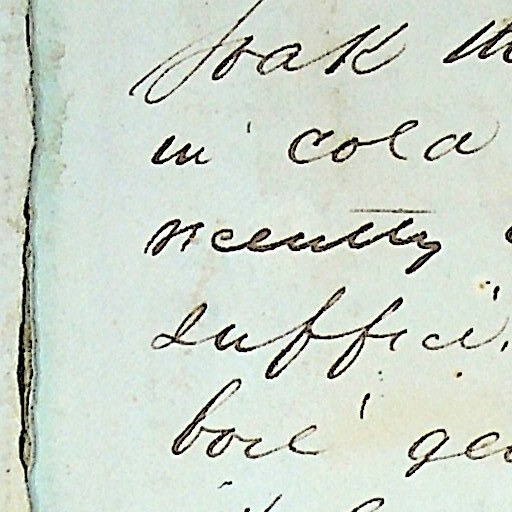 Soak th
in cold
recently
suffici
boil ge